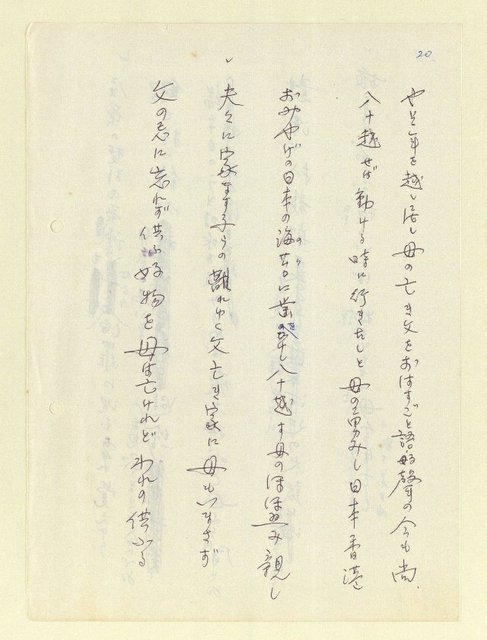 20
やそ年を越し居し母の亡き父をおはすごと語る聲の今も尚
八十越せば動ける時に行き度しと母の勇みし日本香港
おみやげの日本の海苔に歯のりき八十越す母のほほ笑み親し
夫々に家もする子らの離れゆく父亡き家に母もいまさず
父の忌に忘れず供ふ好物を母は亡けれどわれの供ふる